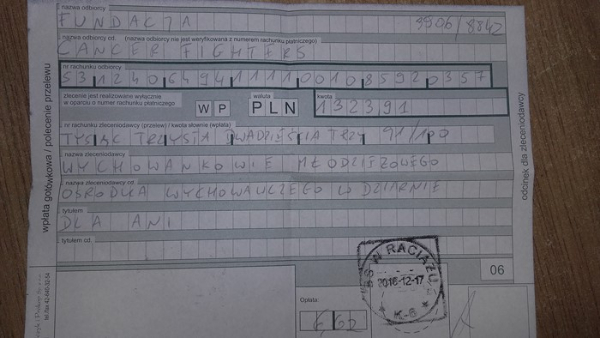 nazwa odbiorcy
FUNDACJA
8506/8842
nazwa odbiorcy cd. (nazwa odbiorcy nie jest weryfikowana z numerem rachunku płatniczego)
CANCER FIGHTERS
nr rachunku odbiorcy
53124064941111001085920357
zlecenie jest realizowane wyłącznie
w oparciu o numer rachunku płatniczego
W P
waluta
PLN
kwota
1323,91
nr rachunku zleceniodawcy (przelew) / kwota słownie (wpłata)
TYSIĄC TRZYSTA DWADZIEŚCIA TRZY 91/100
nazwa zleceniodawcy
WYCHOWANKOWIE MŁODZIEŻOWEGO
nazwa zleceniodawcy cd.
OŚRODKA WYCHOWAWCZEGO W DZIARNIE
tytułem
DLA ANI
tytułem cd.
wpłata gotówkowa / polecenie przelewu
odcinek dla zleceniodawcy
BS W RACIĄŻU
2016-12-17
K-6
06
Opłata: